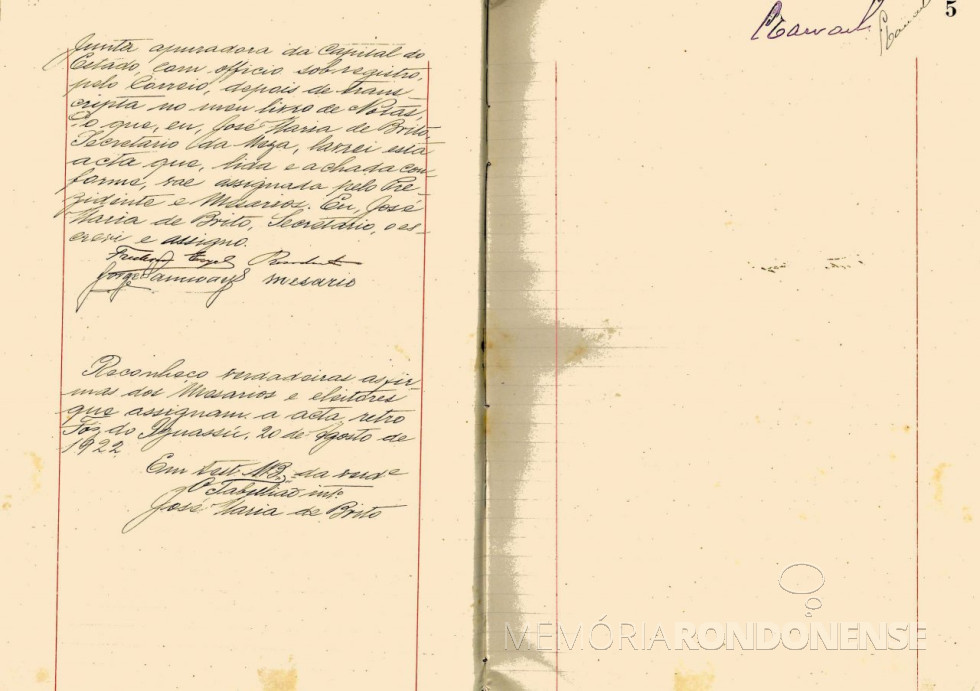 Junta apuradora da Capital do
Estado, com officio sob registro,
pelo Correio, depois de trans
cripta no meu livro de Notas,
Do que, eu, José Maria de Brito,
Secretario da Meza, lavrei esta
acta que, lida e achada con
forme, vae assignada pelo Pre
zidente e Mesarios. Eu, José
Maria de Brito, Secretario, o es-
crevi e assigno.
Jorge mesario
Reconheco verdadeiras as fir
mas dos Mesarios e eleitores
que assignam a acta retro
Foz do Iguassú, 20 de Agosto de
1922
Em test. da verd.e
O Tabellião int.o
José Maria de Brito
5
MEMÓRIARONDONENSE